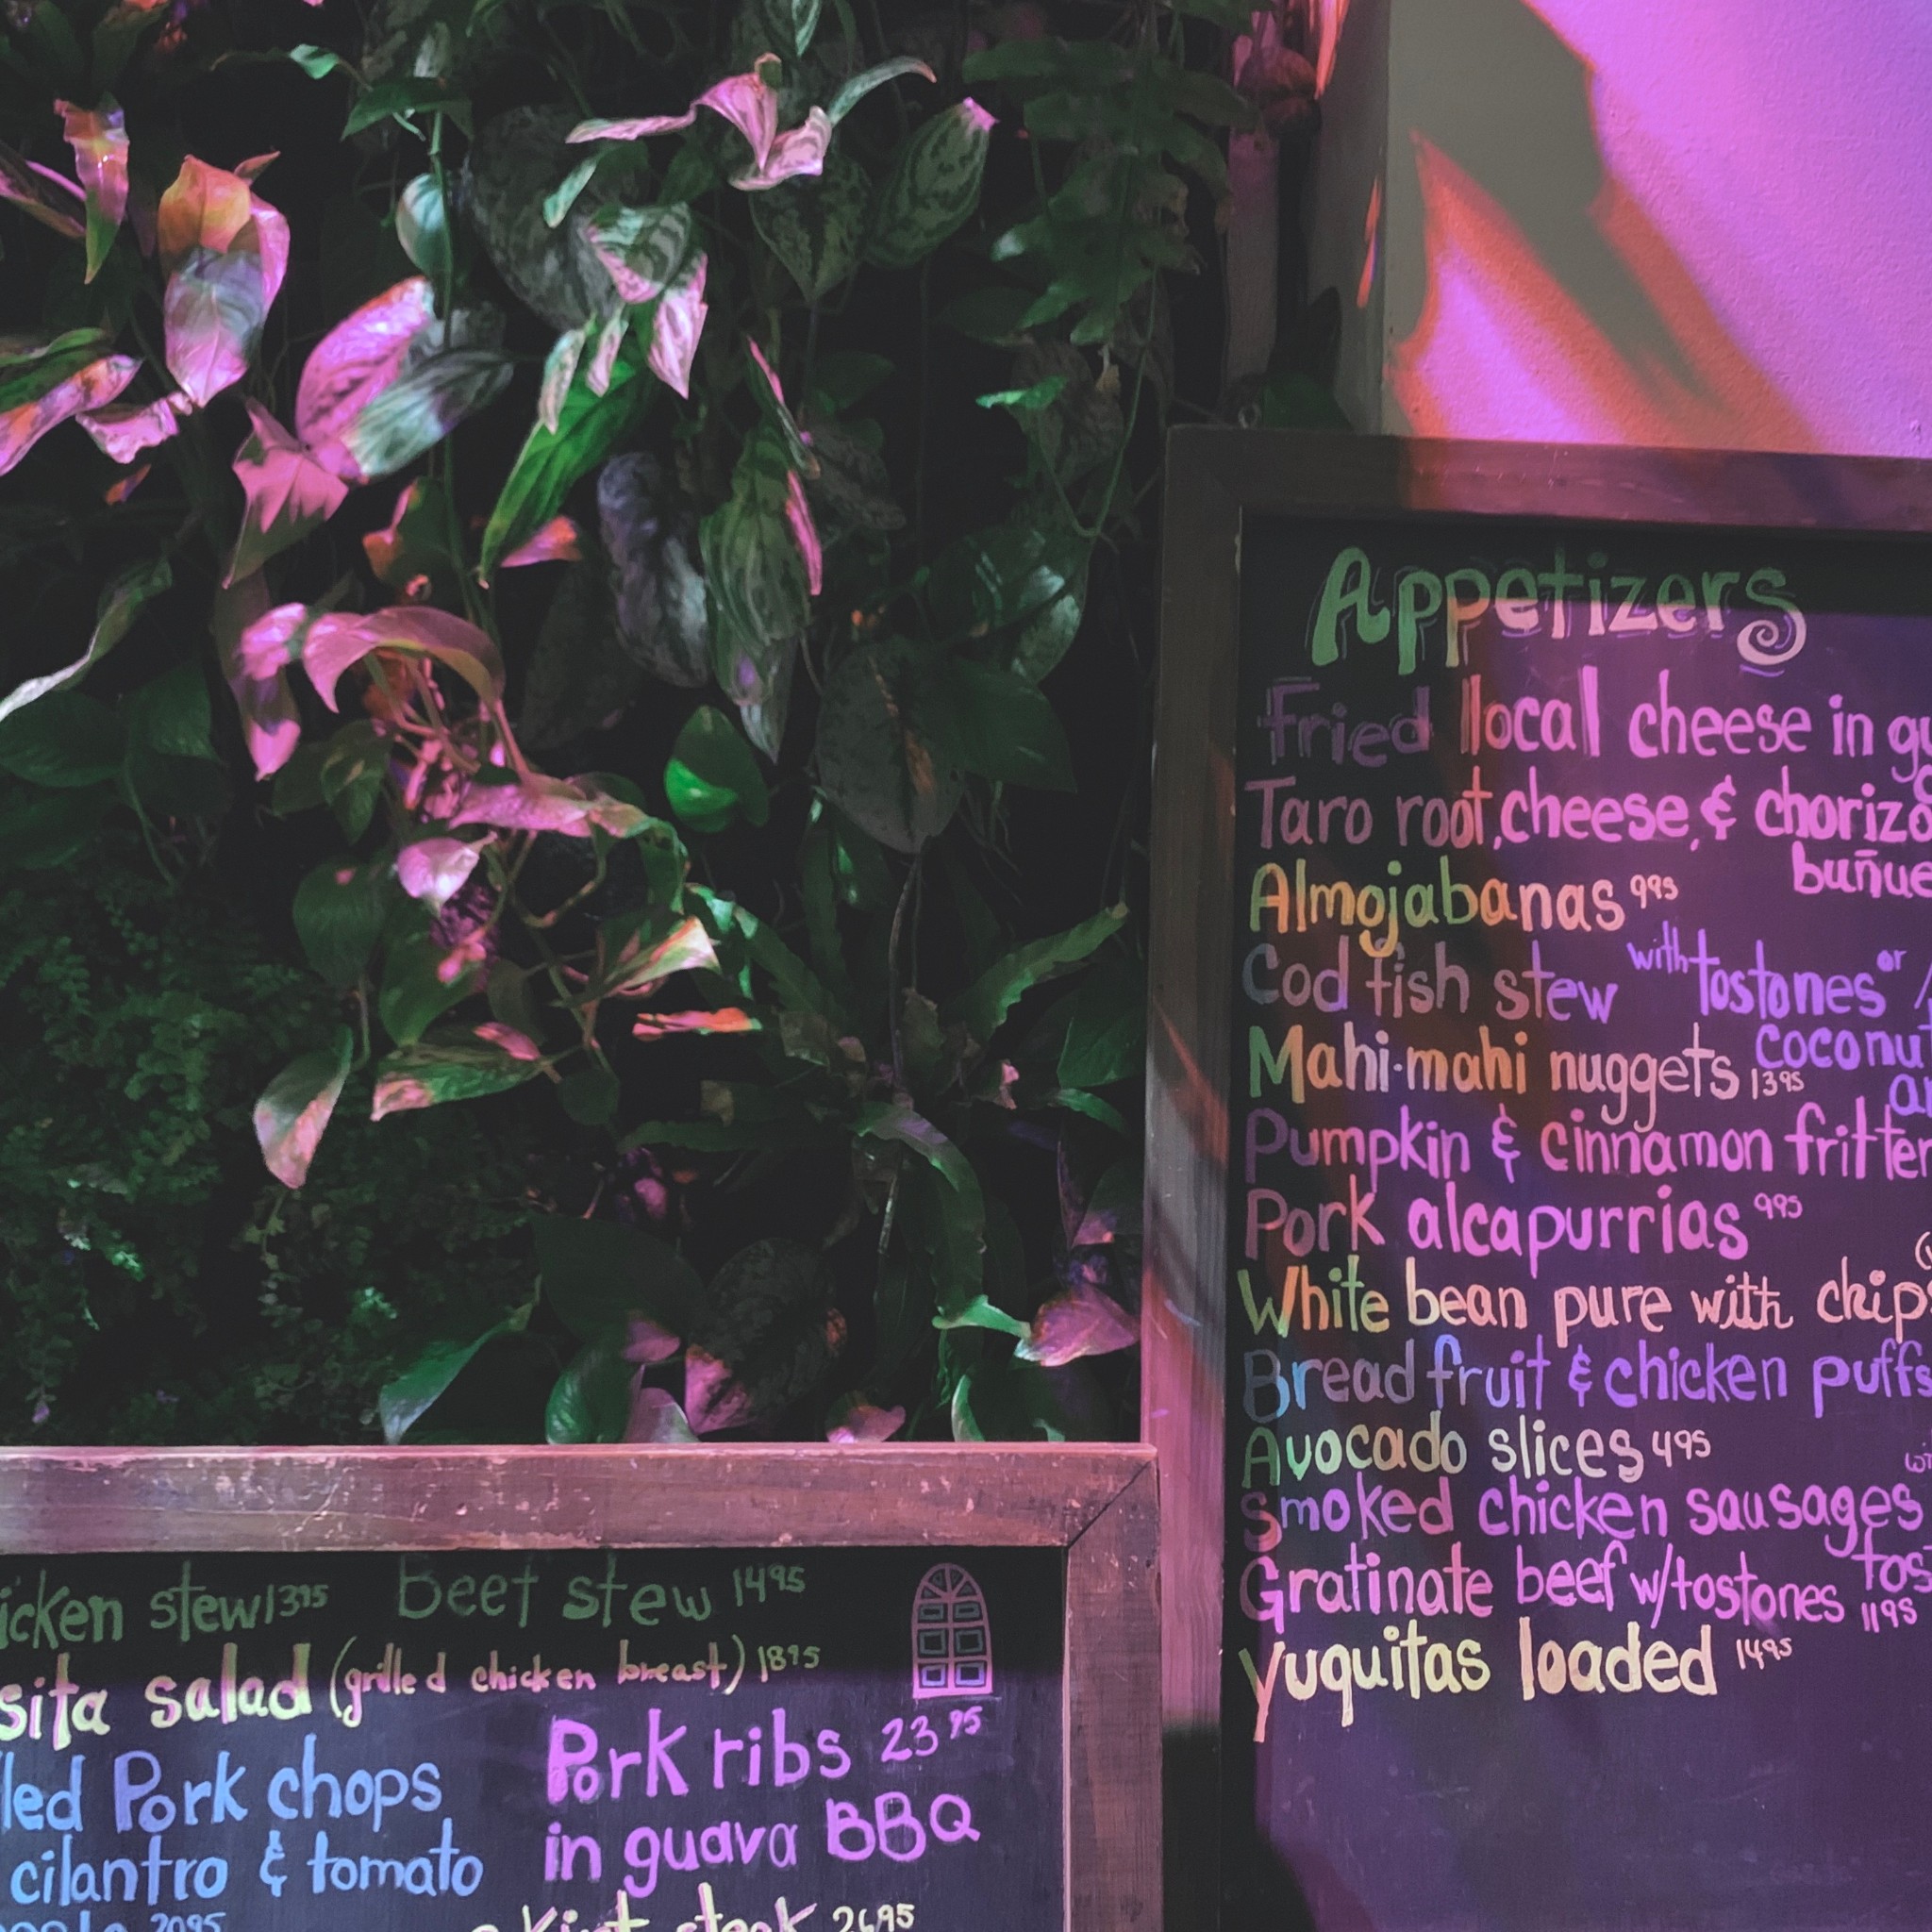 Appetizers
Fried local cheese in
Taro root, cheese, & chorizo
Almojabanas 995
Codfish stew with tostones or
Mahi-mahi nuggets 1395
Pumpkin & cinnamon
Pork alcapurrias 995
White bean pure with
Breadfruit & chicken puffs
Avocado slices 495
Smoked chicken sausages
Gratinate beef w/tostones 1195
Yuquitas loaded 1495
stew 1395 Beef stew 1495
salad (grilled chicken breast) 1895
Pork chops
cilantro & tomato
2095
Pork ribs 2395
in guava BBQ
2695